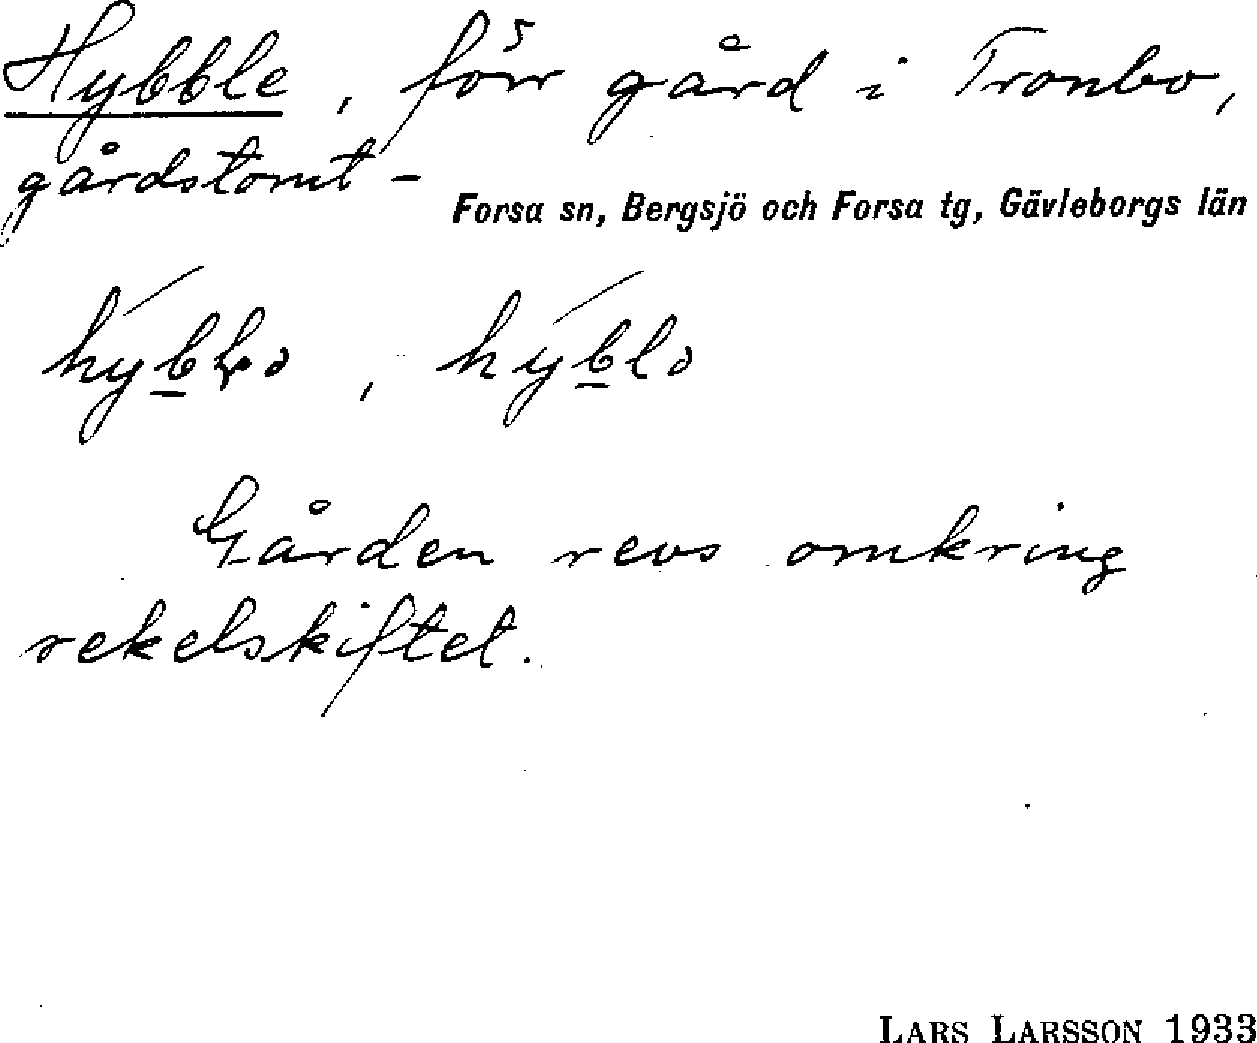 Hybble, förr gård i Tronbo,
gårdstomt -
Forsa sn, Bergsjö och Forsa tg, Gävleborgs län
, hýblə
Gården revs omkring
rekelskiftet.
LARS LARSSON 1933